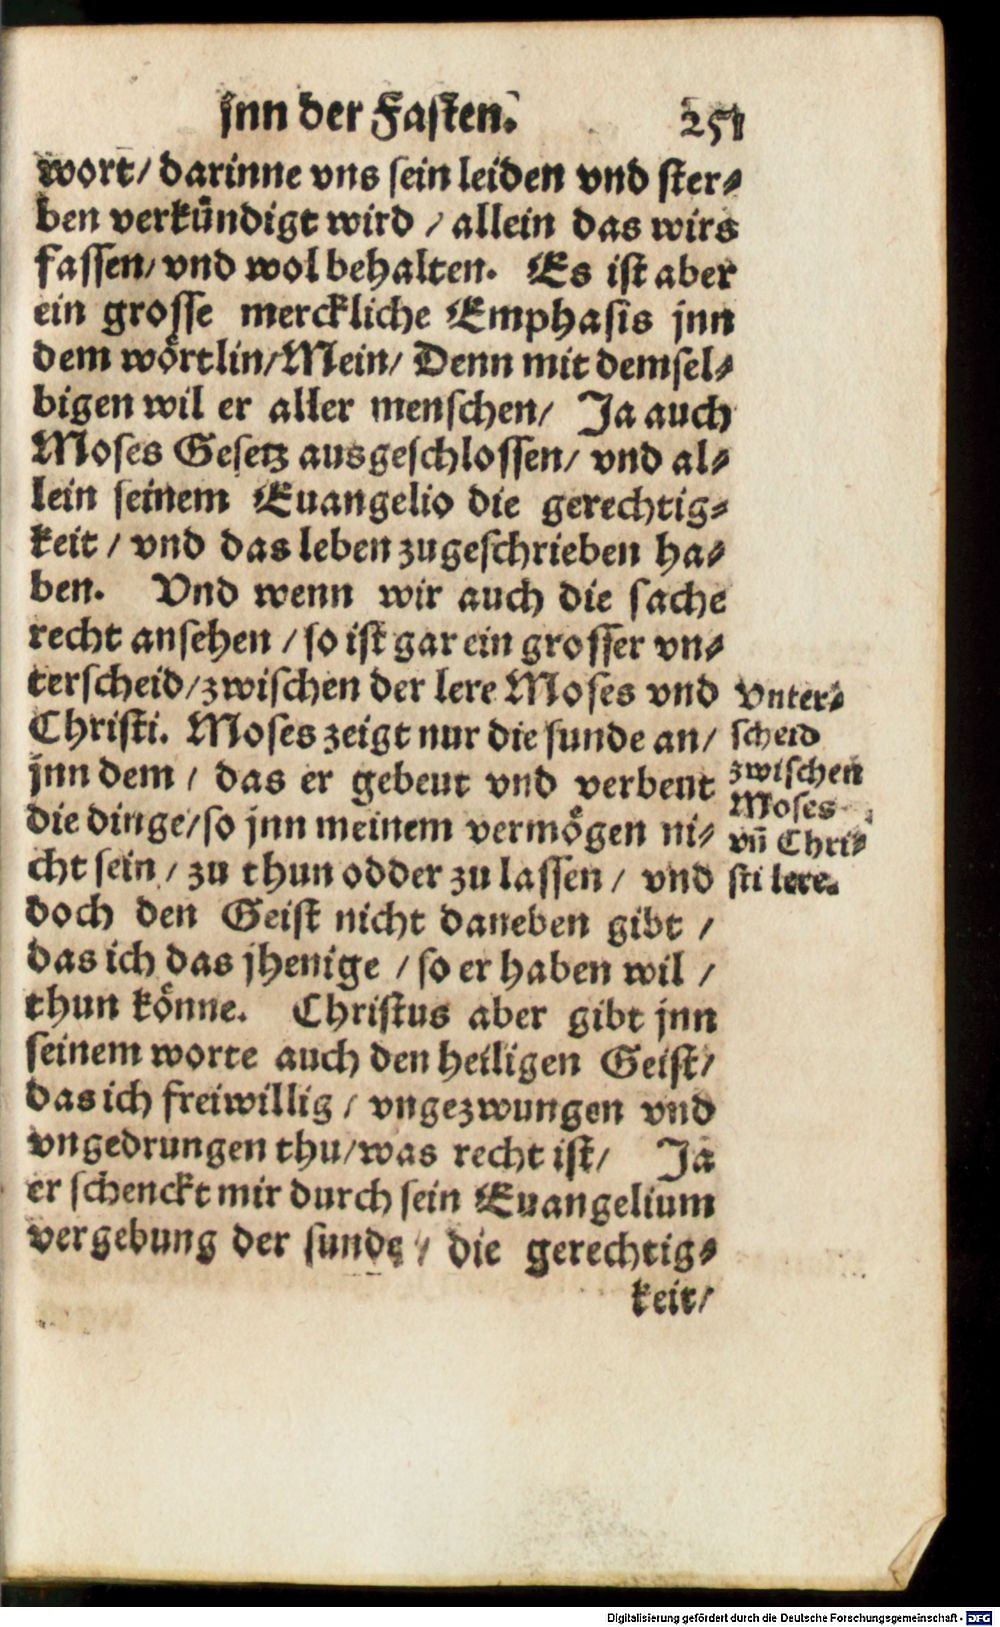 jnn der Fasten. 251
wort/ darinne vns sein leiden vnd ster⸗
ben verkündigt wird / allein das wirs
fassen/ vnd wol behalten. Es ist aber
ein grosse merckliche Emphasis jnn
dem wörtlin/ Mein/ Denn mit demsel⸗
bigen wil er aller menschen/ Ja auch
Moses Gesetz ausgeschlossen/ vnd al⸗
lein seinem Euangelio die gerechtig⸗
keit / vnd das leben zugeschrieben ha⸗
ben. Vnd wenn wir auch die sache
recht ansehen / so ist gar ein grosser vn⸗
terscheid/ zwischen der lere Moses vnd
Christi. Moses zeigt nur die sunde an/
jnn dem / das er gebeut vnd verbeut
die dinge/ so jnn meinem vermögen ni⸗
cht sein / zu thun odder zu lassen / vnd
doch den Geist nicht daneben gibt /
das ich das jhenige / so er haben wil /
thun könne. Christus aber gibt jnn
seinem worte auch den heiligen Geist/
das ich freiwillig / vngezwungen vnd
vngedrungen thu/ was recht ist/ Ja
er schenckt mir durch sein Euangelium
vergebung der sunde / die gerechtig⸗
keit/
Vnter⸗
scheid
zwischen
Moses
vñ Chri⸗
sti lere.
Digitalisierung gefördert durch die Deutsche Forschungsgemeinschaft - DFG